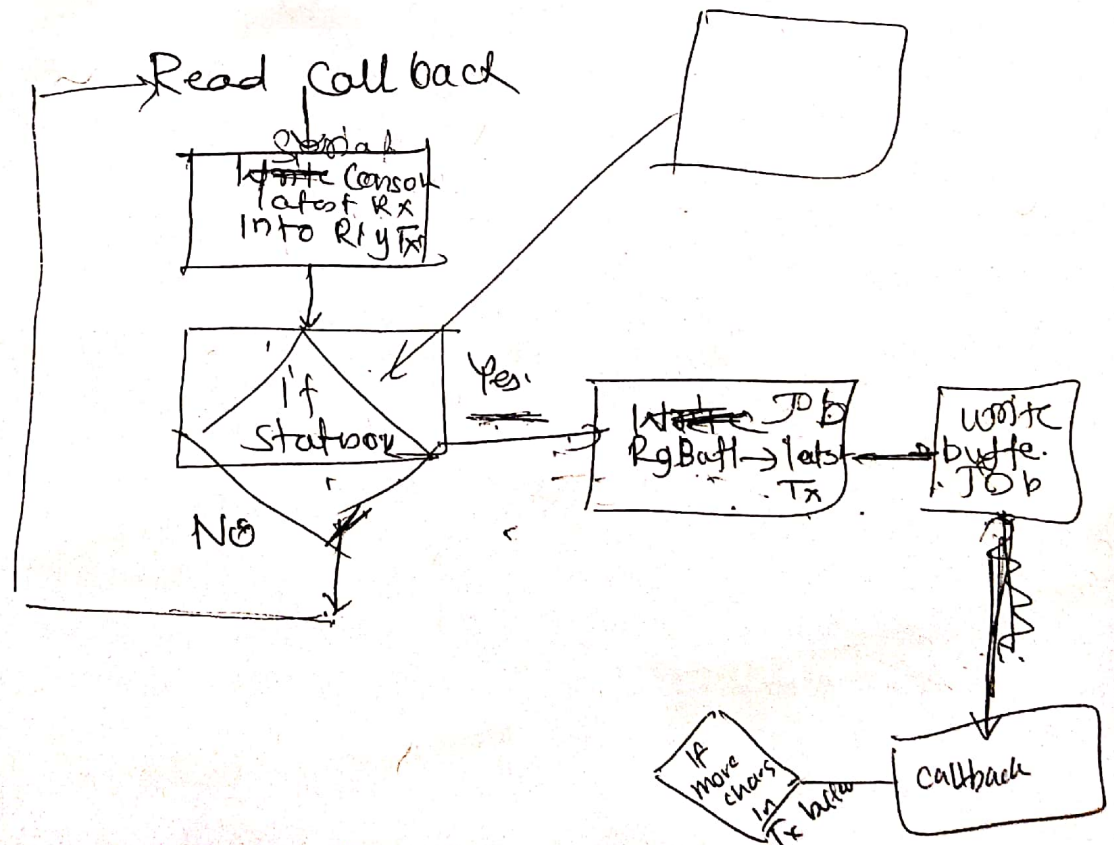 Read Callback
Serial
Write Consol
latest Rx
Into Rig Tx
If
Yes.
NO
Write Job
→ latst
Tx
Write
buffe.
Job
Callback
If
more
chars
in
Tx buffer